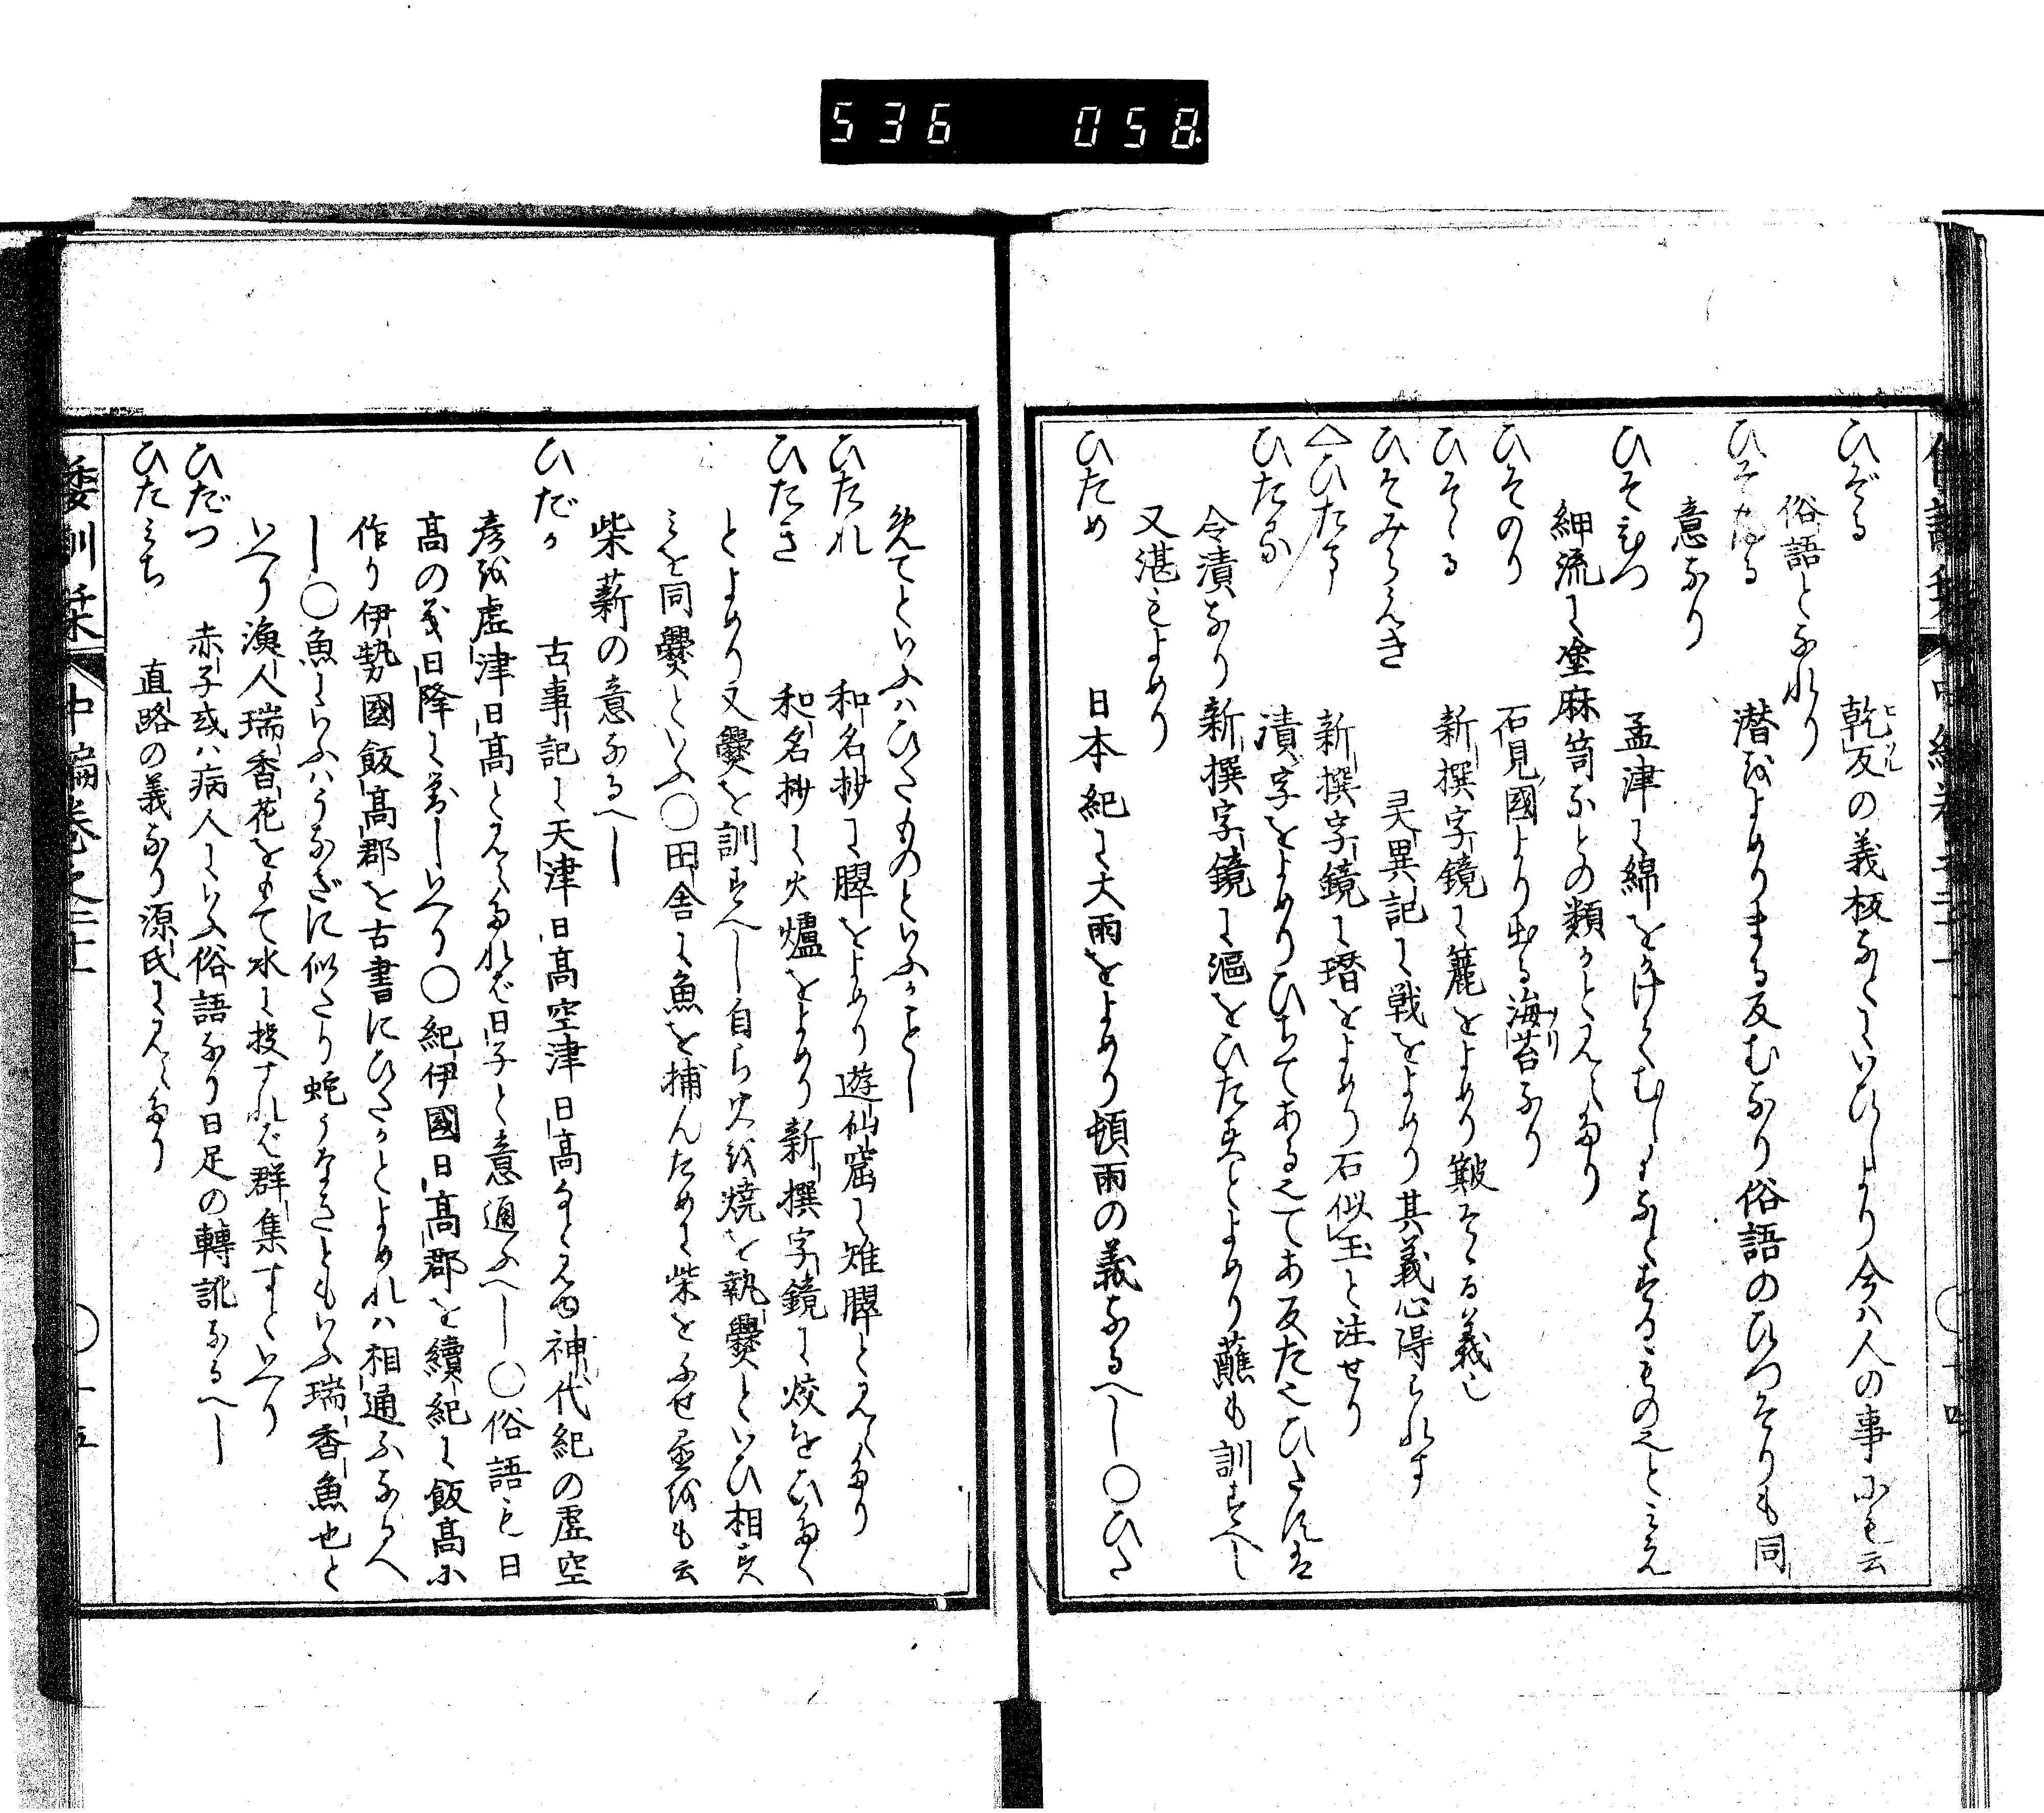 536 058
ひぞる 乾反の義板なとにいひしより今ハ人の事にも云
俗語となれり
ひそ る 潜をよめりまる反むなり俗語のひつそりも同
意なり
ひそむつ 孟津に綿をかけてむしたるものと
紳流に塗麻笥なとの類かとみえたり
ひそのり 石見國より出る海苔なり
ひそゝる 新撰字鏡に麓をよめり皺そゝる義也
ひそみらへき 灵異記に戦をよめり其義心得られす
△ひたま 新撰字鏡に㻸をよめり石似玉と注せり
ひたる 漬字をよめりひちてある
令漬なり 新撰字鏡に漚をひた とよめり蘸も訓すへし
又湛もよめり
ひため 日本紀に大雨をよめり頓雨の義なるへし〇ひた
めてといふハひたものといふかことし
ひたれ 和名抄に臎をよめり遊仙窟に雉臎とみえたり
ひたき 和名抄に火爐をよめり新撰字鏡に烄をひたく
とよめり又爨を訓すへし自ら火を焼を執爨といひ相共
にを同爨といふ〇田舎に魚を捕んために柴をふせ置をも云
柴薪の意なるへし
ひだか 古事記に天津日高空津日高なとみゆ神代紀の虚空
彦を虚津日高とみえたれば日子と意通ふへし〇俗語も日
高の義日降に對しいへり〇紀伊國日高郡を續紀に飯高に
作り伊勢國飯高郡を古書にひたかとよめれハ相通ふなるへ
し〇魚にいふハうなぎに似たり蛇うなきともいふ瑞香魚也と
いへり漁人瑞香花をもて水に投すれば群集すといへり
ひだつ 赤子或ハ病人にいふ俗語なり日足の轉訛なるへし
ひたみち 直路の義なり源氏にみえたり
倭訓栞 中編巻之二十一 〇十五